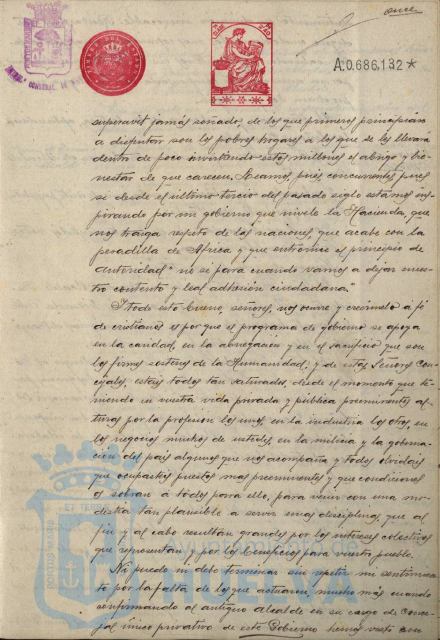 once
A.0.686.132 *
superavit jamás soñado, de los que primeros principiarán
a disfrutar son los pobres hogares a los que se les llevará
dentro de poco invirtiendo estos millones el abrigo y bie-
nestar de que carecen. Seamos, pues, concurrentes pues
si desde el último tercio del pasado siglo estamos sus-
pirando por un gobierno que nivele la Hacienda, que
nos traiga respeto de las naciones, que acabe con la
pesadilla de Africa y que entronice el principio de
Autoridad" no se para cuando vamos a dejar nues-
tro contento y leal adhesión ciudadana."
Y todo esto bueno, señores, nos ocurre y creérmelo á fé
de cristiano es por que el programa de gobierno se apoya
en la caridad, en la abnegación y en el sacrificio que son
los firmes sostenes de la Humanidad; y de estos, Señores Con-
cejales, estais todos tan saturados, desde el momento que te-
niendo en vuestra vida privada y pública preeminentes al-
turas por la profesion los unos, en la industria los otros, en
los negocios muchos de ustedes, en la milicia y la goberna-
ción del país algunos que nos acompaña y todos olvidais
que ocupasteis puestos mas preeminentes y que condiciones
os sobran á todos para ello, para venir con una mo-
destia tan plausible a servir unos desciplina, que al
fin y al cabo resultan grandes por los intereses colectivos
que representan y por los beneficios para vuestro pueblo.
No puedo ni debo terminar sin repetir mi sentimien-
to por la falta de los que actuaron, mucho más cuando
confirmando al antiguo alcalde en su cargo de Conce-
jal único privativo de este Gobierno hemos visto con